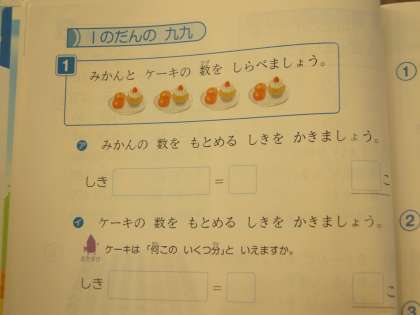 1のだんの 九九
1
みかんと ケーキの 数を しらべましょう。
ア みかんの 数を もとめる しきを かきましょう。
しき = こ
イ ケーキの 数を もとめる しきを かきましょう。
ケーキは 「何この いくつ分」と いえますか。
しき = こ
①
②
③